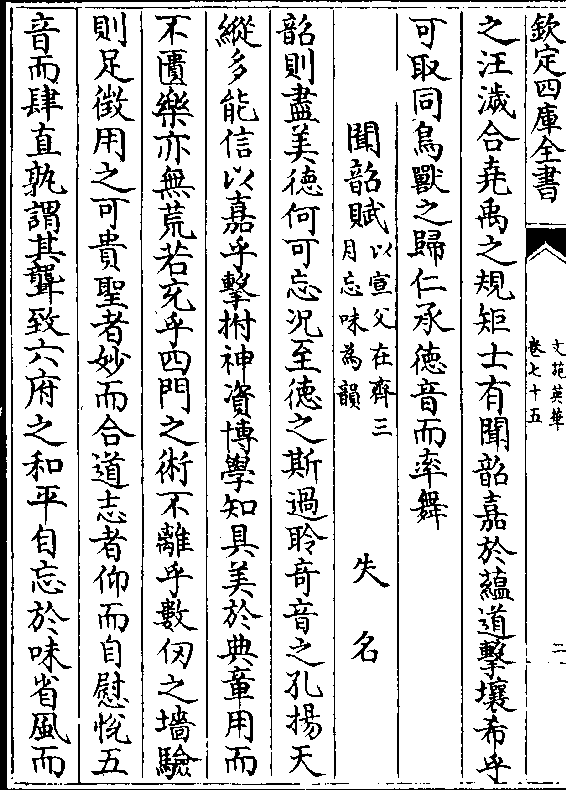 欽定四庫全書
文苑英華
卷七十五
二
之汪濊合堯禹之規矩士有聞韶嘉於蘊道擊壤希乎
可取同鳥獸之歸仁承德音而率舞
聞韶賦以宣父在齊三
月忘味為韻
失名
韶則盡美德何可忘況至德之斯過聆奇音之孔揚天
縱多能信以嘉乎擊拊神資博學知具美於典章用而
不匱樂亦無荒若充乎四門之術不離乎數仞之墻驗
則足徵用之可貴聖者妙而合道志者仰而自慰悅五
音而肆直孰謂其聾致六府之和平自忘於味省風而